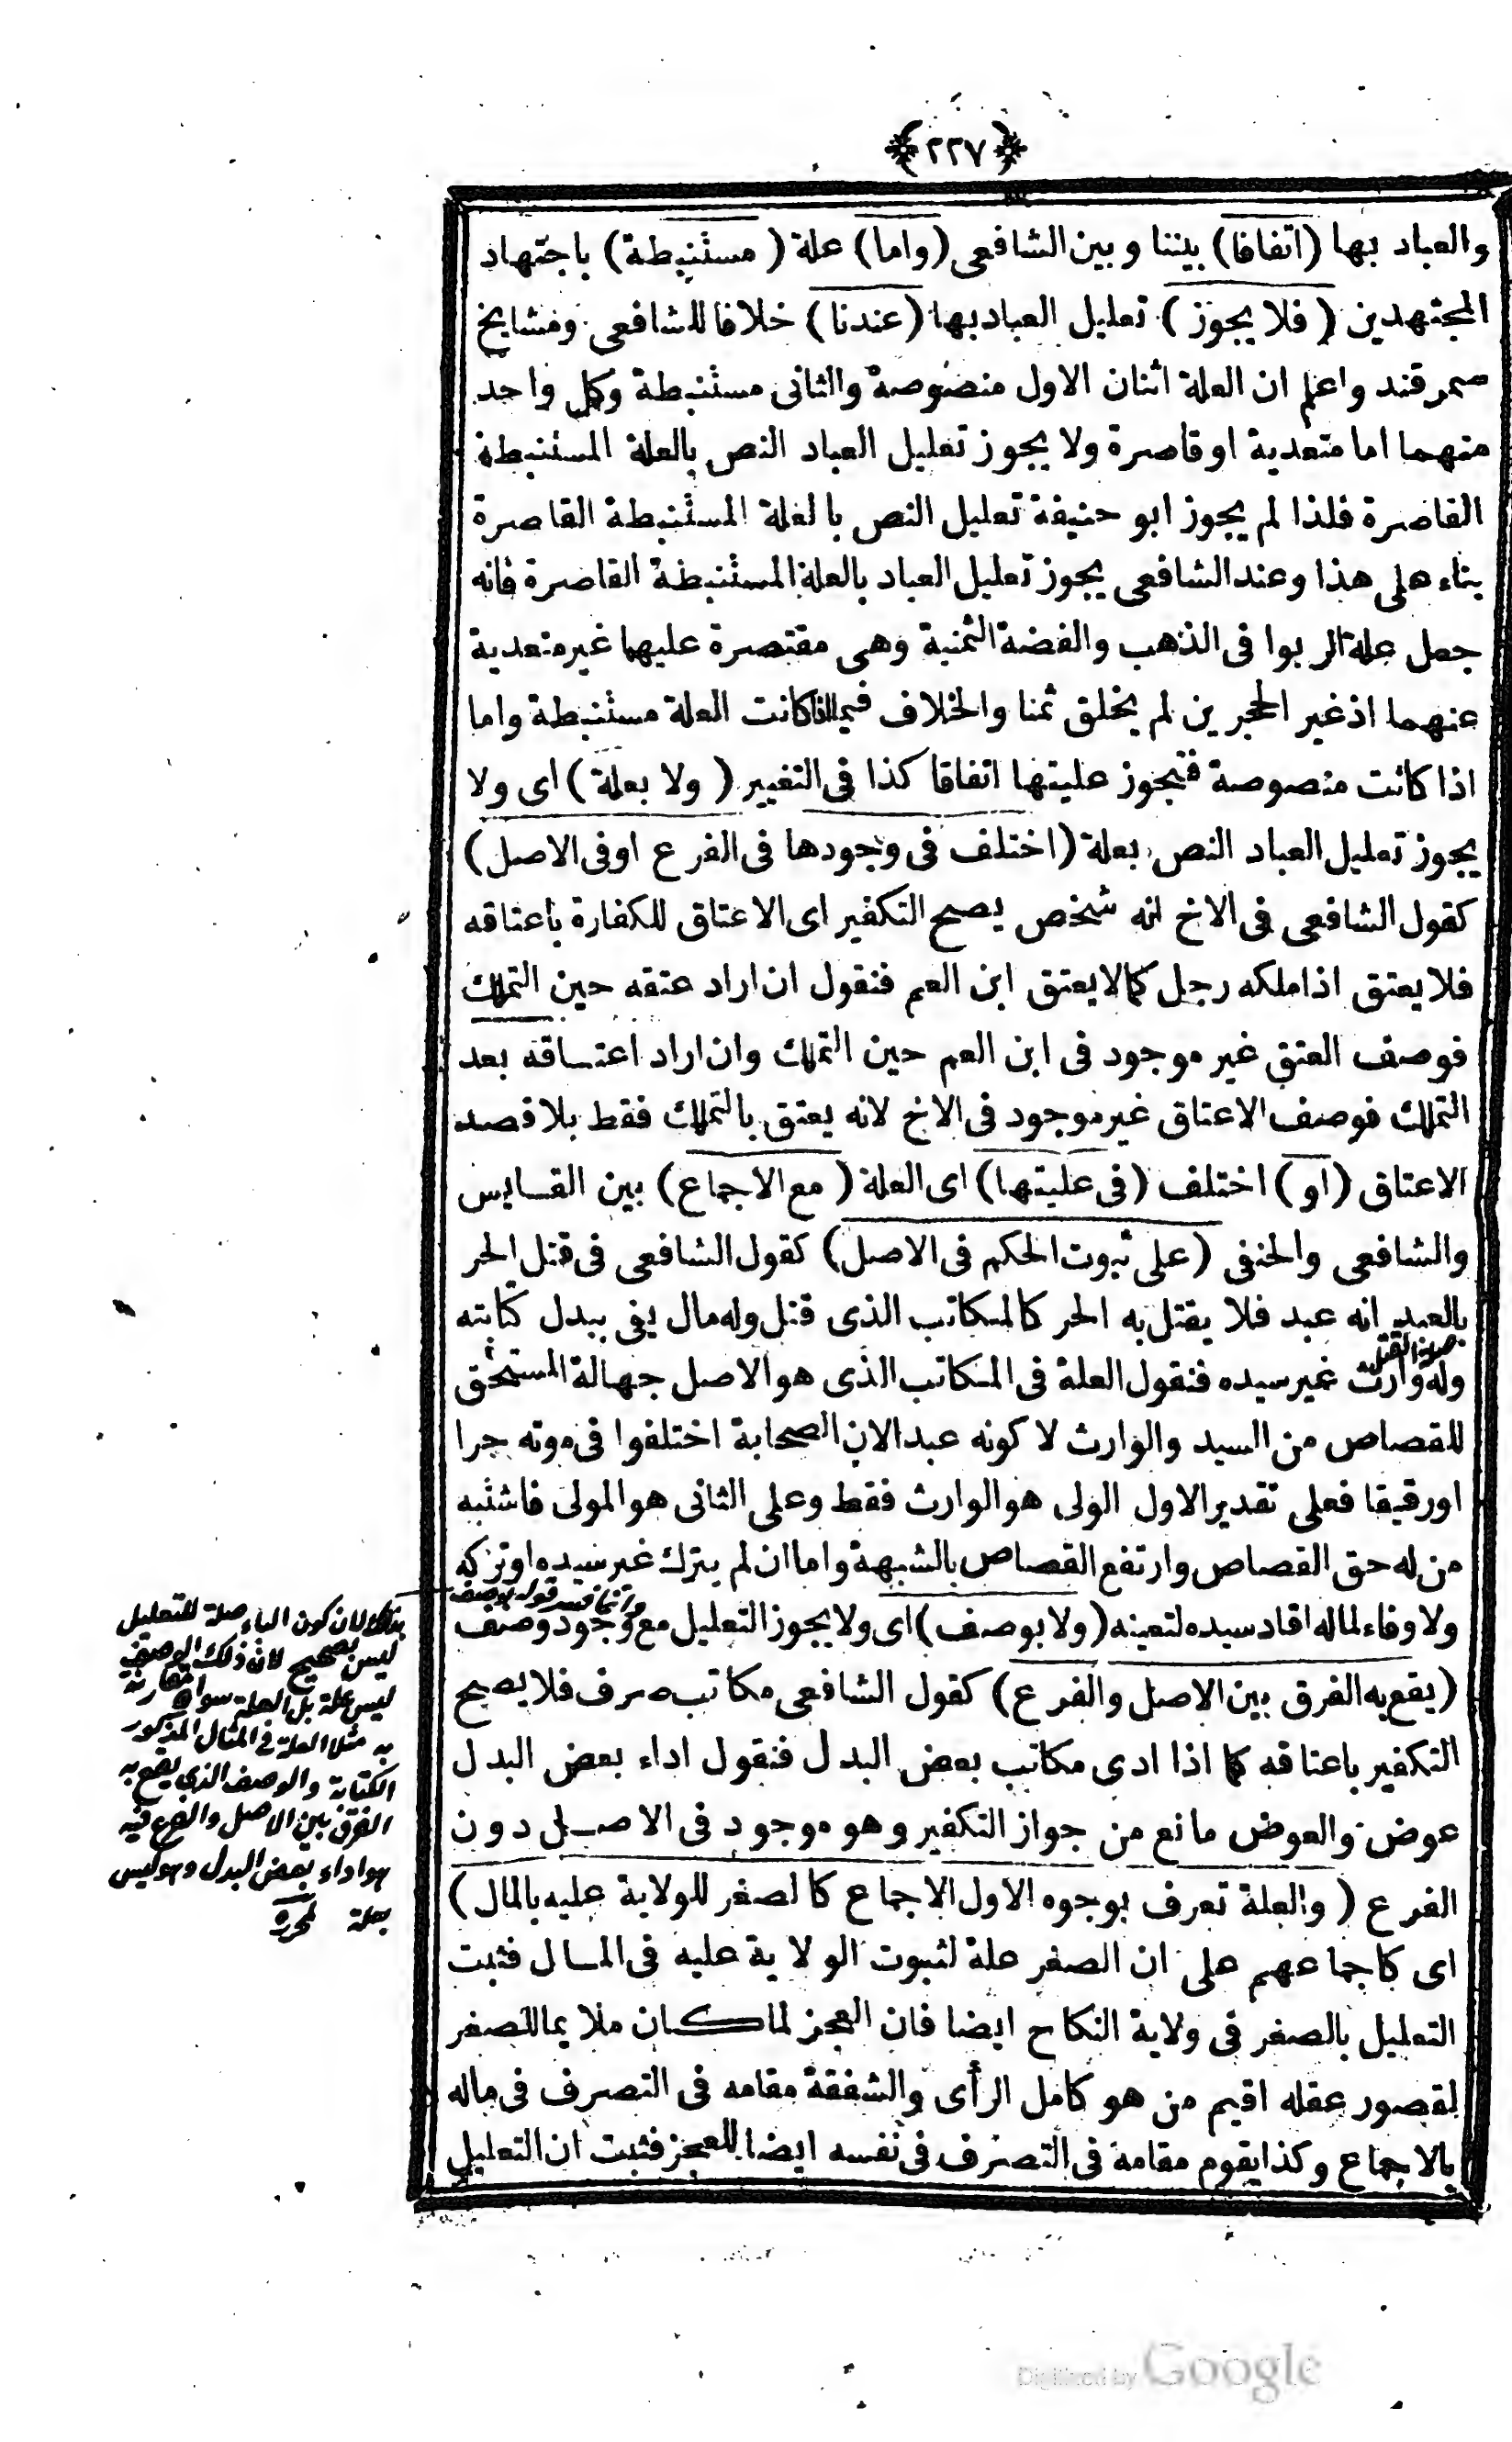 ﴿٢٢٧﴾
والعباد بها (اتفاقا) بيننا وبين الشافعى (واما) علة (مستنبطة) باجتهاد
المجتهدين (فلا يجوز) تعليل العباد بها (عندنا) خلافا للشافعى ومشايخ
سمرقند واعلم ان العلة اثنان الاول منصوصة والثانى مستنبطة وكل واحد
منهما اما متعدية او قاصرة ولا يجوز تعليل العباد النص بالعلة المستنبطة
القاصرة فلذا لم يجوز ابو حنيفة تعليل النص بالعلة المستنبطة القاصرة
بناء على هذا وعند الشافعى يجوز تعليل العباد بالعلة المستنبطة القاصرة فانه
جعل علة الربوا فى الذهب والفضة الثمنية وهى مقتصرة عليهما غير متعدية
عنهما اذ غير الحجرين لم يخلق ثمنا والخلاف فيما اذا كانت العلة مستنبطة واما
اذا كانت منصوصة فيجوز عليتها اتفاقا كذا فى التغيير (ولا بعلة) اى ولا
يجوز تعليل العباد النص بعلة (اختلف فى وجودها فى الفرع او فى الاصل)
كقول الشافعى فى الاخ انه شخص يصح التكفير اى الاعتاق للكفارة باعتاقه
فلا يعتق اذا ملكه رجل كما لا يعتق ابن العم فنقول ان اراد عتقه حين التملك
فوصف العتق غير موجود فى ابن العم حين التملك وان اراد اعتاقه بعد
التملك فوصف الاعتاق غير موجود فى الاخ لانه يعتق بالتملك فقط بلا قصد
الاعتاق (او) اختلف (فى عليتها) اى العلة (مع الاجماع) بين القسايس
والشافعى والحنفى (على ثبوت الحكم فى الاصل) كقول الشافعى فى قتل الحر
بالعبد انه عبد فلا يقتل به الحر كالمكاتب الذى قتل وله مال يفى ببدل كتابته
وله وارث غير سيده فنقول العلة فى المكاتب الذى هو الاصل جهالة المستحق
للقصاص من السيد والوارث لا كونه عبدا لان الصحابة اختلفوا فى موته حرا
او رقيقا فعلى تقدير الاول الولى هو الوارث فقط وعلى الثانى هو المولى فاشتبه
من له حق القصاص وارتفع القصاص بالشبهة واما ان لم يترك غير سيده او تركه
ولا وفاء لماله اقاد سيده لتعينه (ولا بوصف) اى ولا يجوز التعليل مع وجود وصف
(يقع به الفرق بين الاصل والفرع) كقول الشافعى مكاتب صرف فلا يصح
التكفير باعتاقه كما اذا ادى مكاتب بعض البدل فنقول اداء بعض البدل
عوض والعوض مانع من جواز التكفير وهو موجود فى الاصل دون
الفرع (والعلة تعرف بوجوه الاول الاجماع كالصغر للولاية عليه بالمال)
اى كاجماعهم على ان الصغر علة لثبوت الولاية عليه فى المال فثبت
التعليل بالصغر فى ولاية النكاح ايضا فان العجز لما كان ملايما للصغر
لقصور عقله اقيم من هو كامل الرأى والشفقة مقامه فى التصرف فى ماله
بالاجماع وكذا يقوم مقامه فى التصرف فى نفسه ايضا للعجز فثبت ان التعليل
وانما فسر قوله بوصف
بذلك لان كون الباء صلة للتعليل
ليس بصحيح لان ذلك الوصف
ليس علة بل العلة سواه
به مثلا العلة فى المثال المذكور
الكتابة والوصف الذى يقع به
الفرق بين الاصل والفرع فيه
هو اداء بعض البدل وهو ليس
بعلة
Digitized by Google